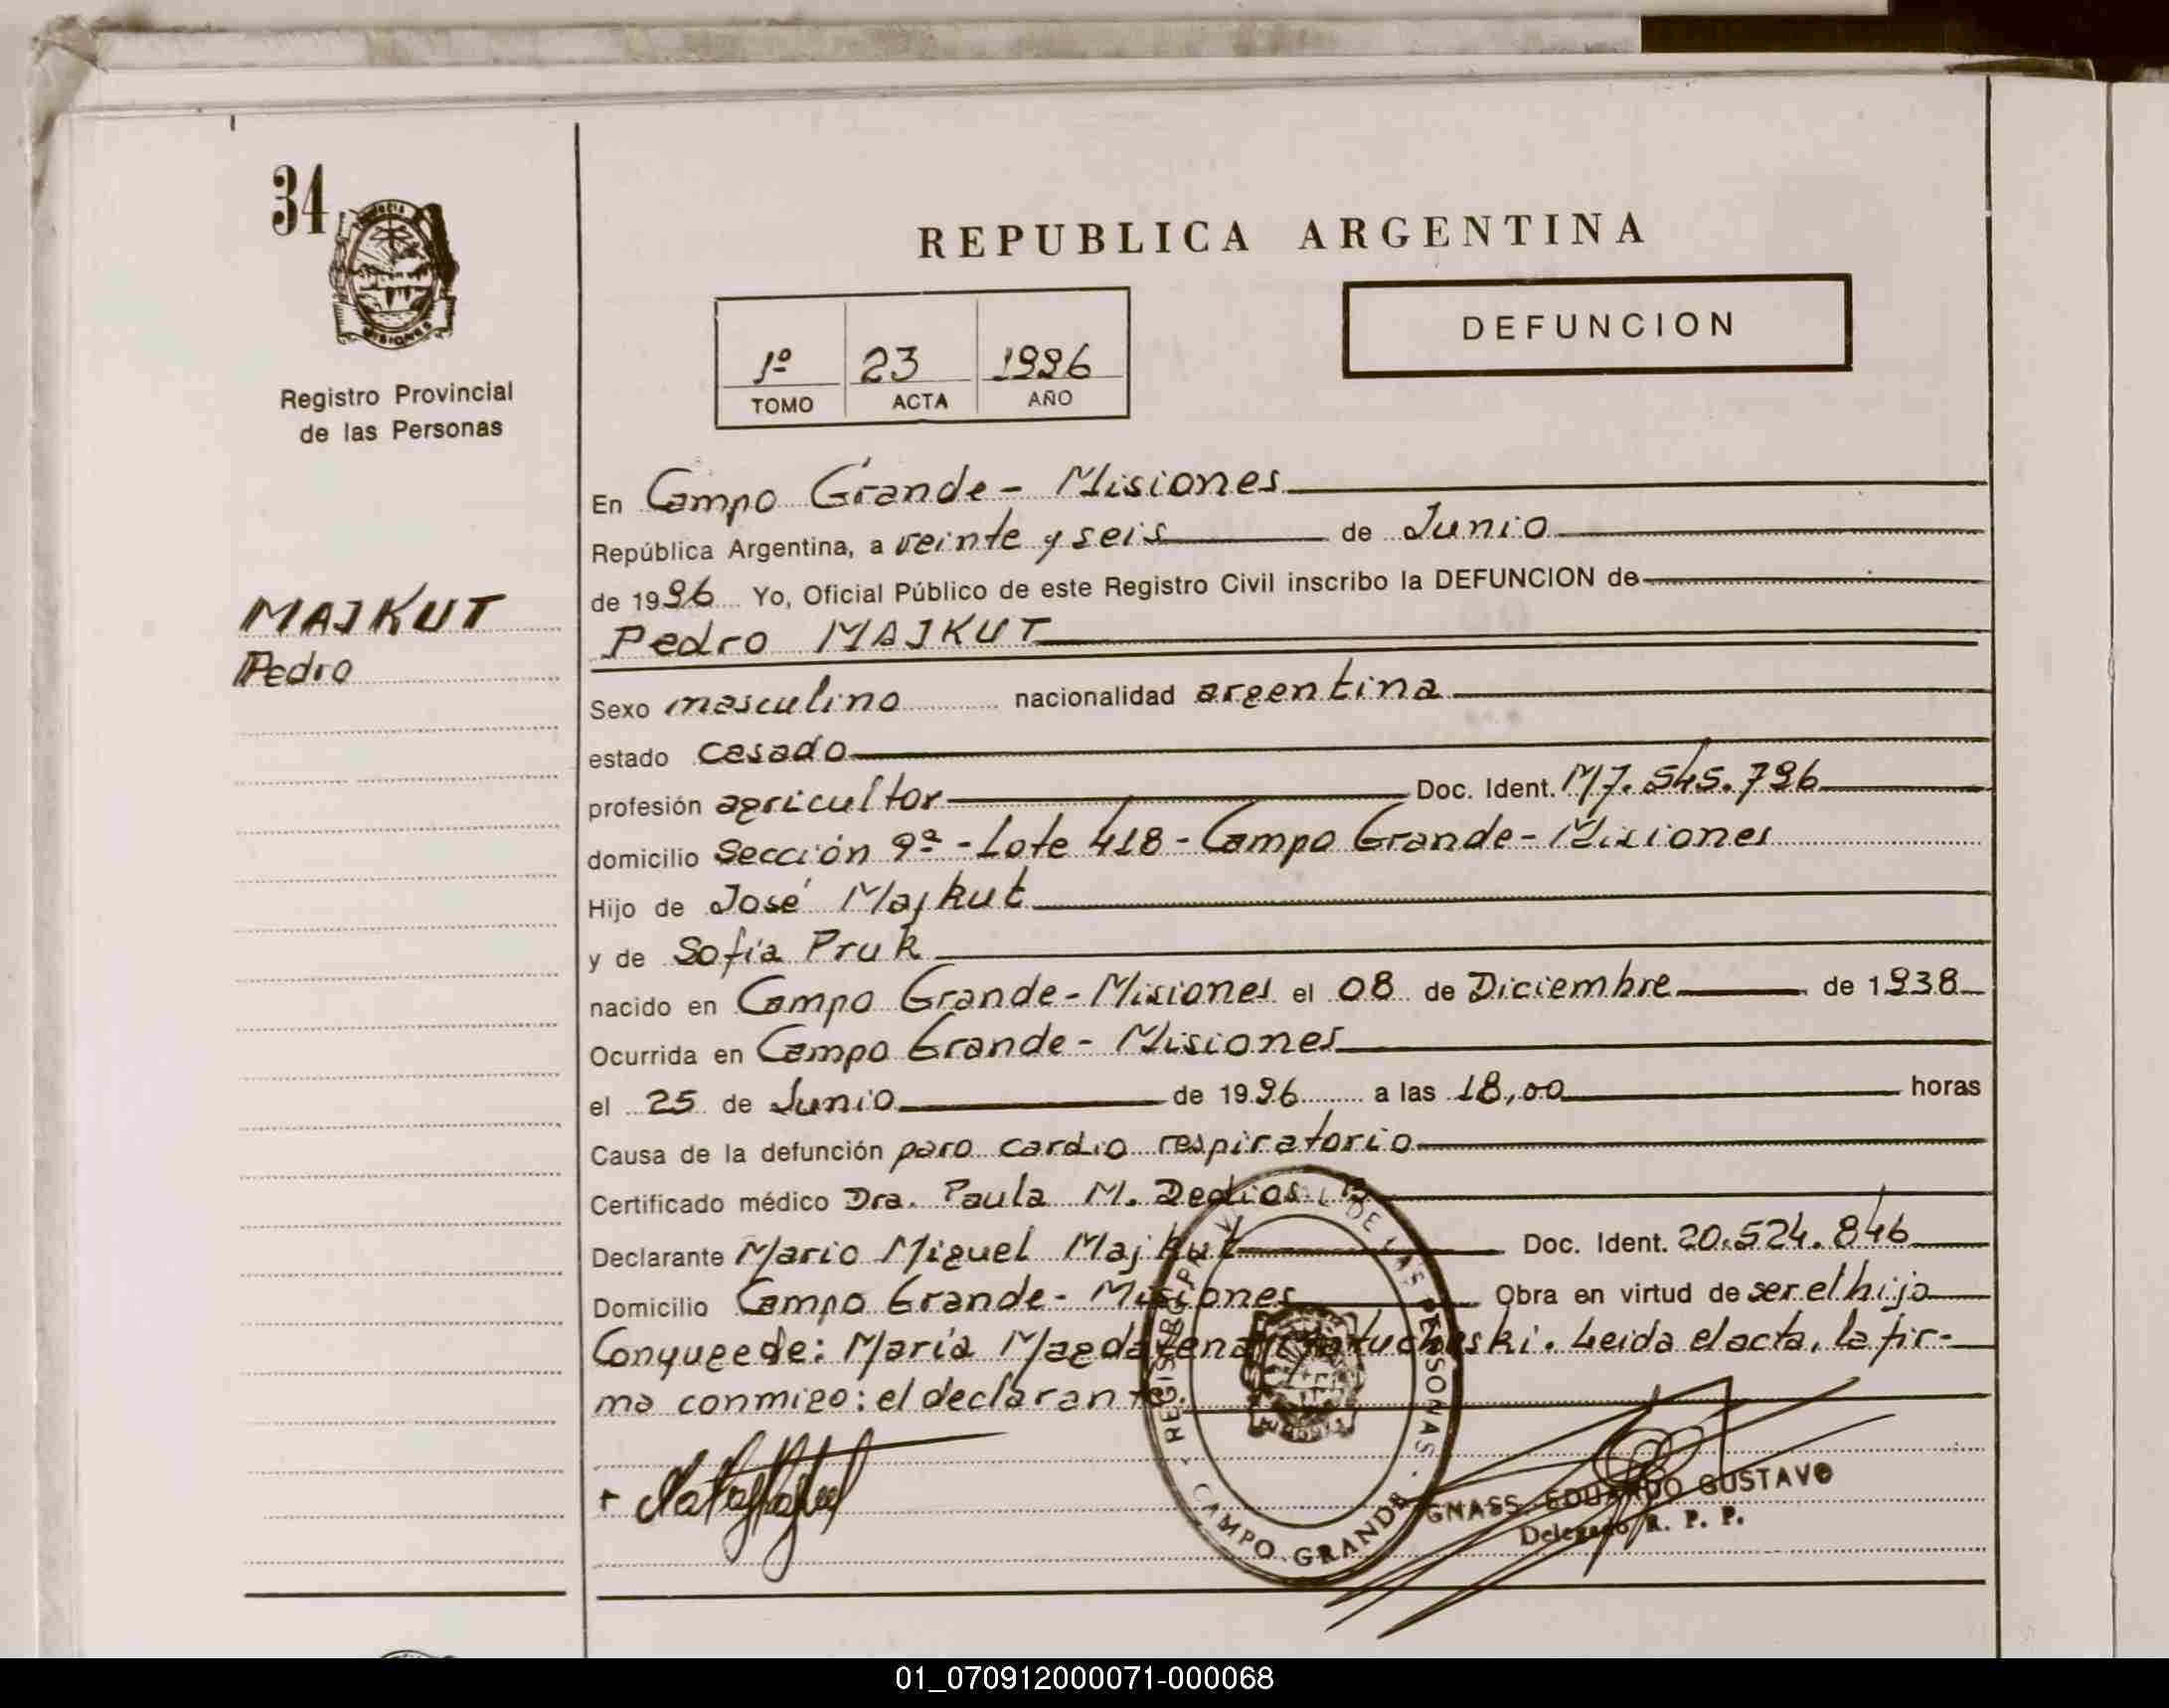 34
REPUBLICA ARGENTINA
DEFUNCION
1º 23 1996
TOMO ACTA AÑO
MISIONES
Registro Provincial
de las Personas
En Campo Grande - Misiones
República Argentina, a veinte y seis de Junio
de 1996 Yo, Oficial Público de este Registro Civil inscribo la DEFUNCION de
MAJKUT
Pedro
Pedro MAJKUT
Sexo masculino nacionalidad argentina
estado casado
profesión agricultor Doc. Ident. M7.545.796
domicilio Sección 9ª - Lote 418 - Campo Grande - Misiones
Hijo de José Majkut
y de Sofía Pruk
nacido en Campo Grande - Misiones el 08 de Diciembre de 1938
Ocurrida en Campo Grande - Misiones
el 25 de Junio de 1996 a las 18,00 horas
Causa de la defunción paro cardio respiratorio
Certificado médico Dra. Paula M. Dedios
Declarante Mario Miguel Majkut Doc. Ident. 20.524.846
Domicilio Campo Grande - Misiones Obra en virtud de ser el hijo
Conyuge de: María Magdalena. Leida el acta, la fir-
ma conmigo: el declarante.
DE LAS PERSONAS
CAMPO GRANDE
GNASS. EDUARDO GUSTAVO
Delegado R. P. P.
01_070912000071-000068